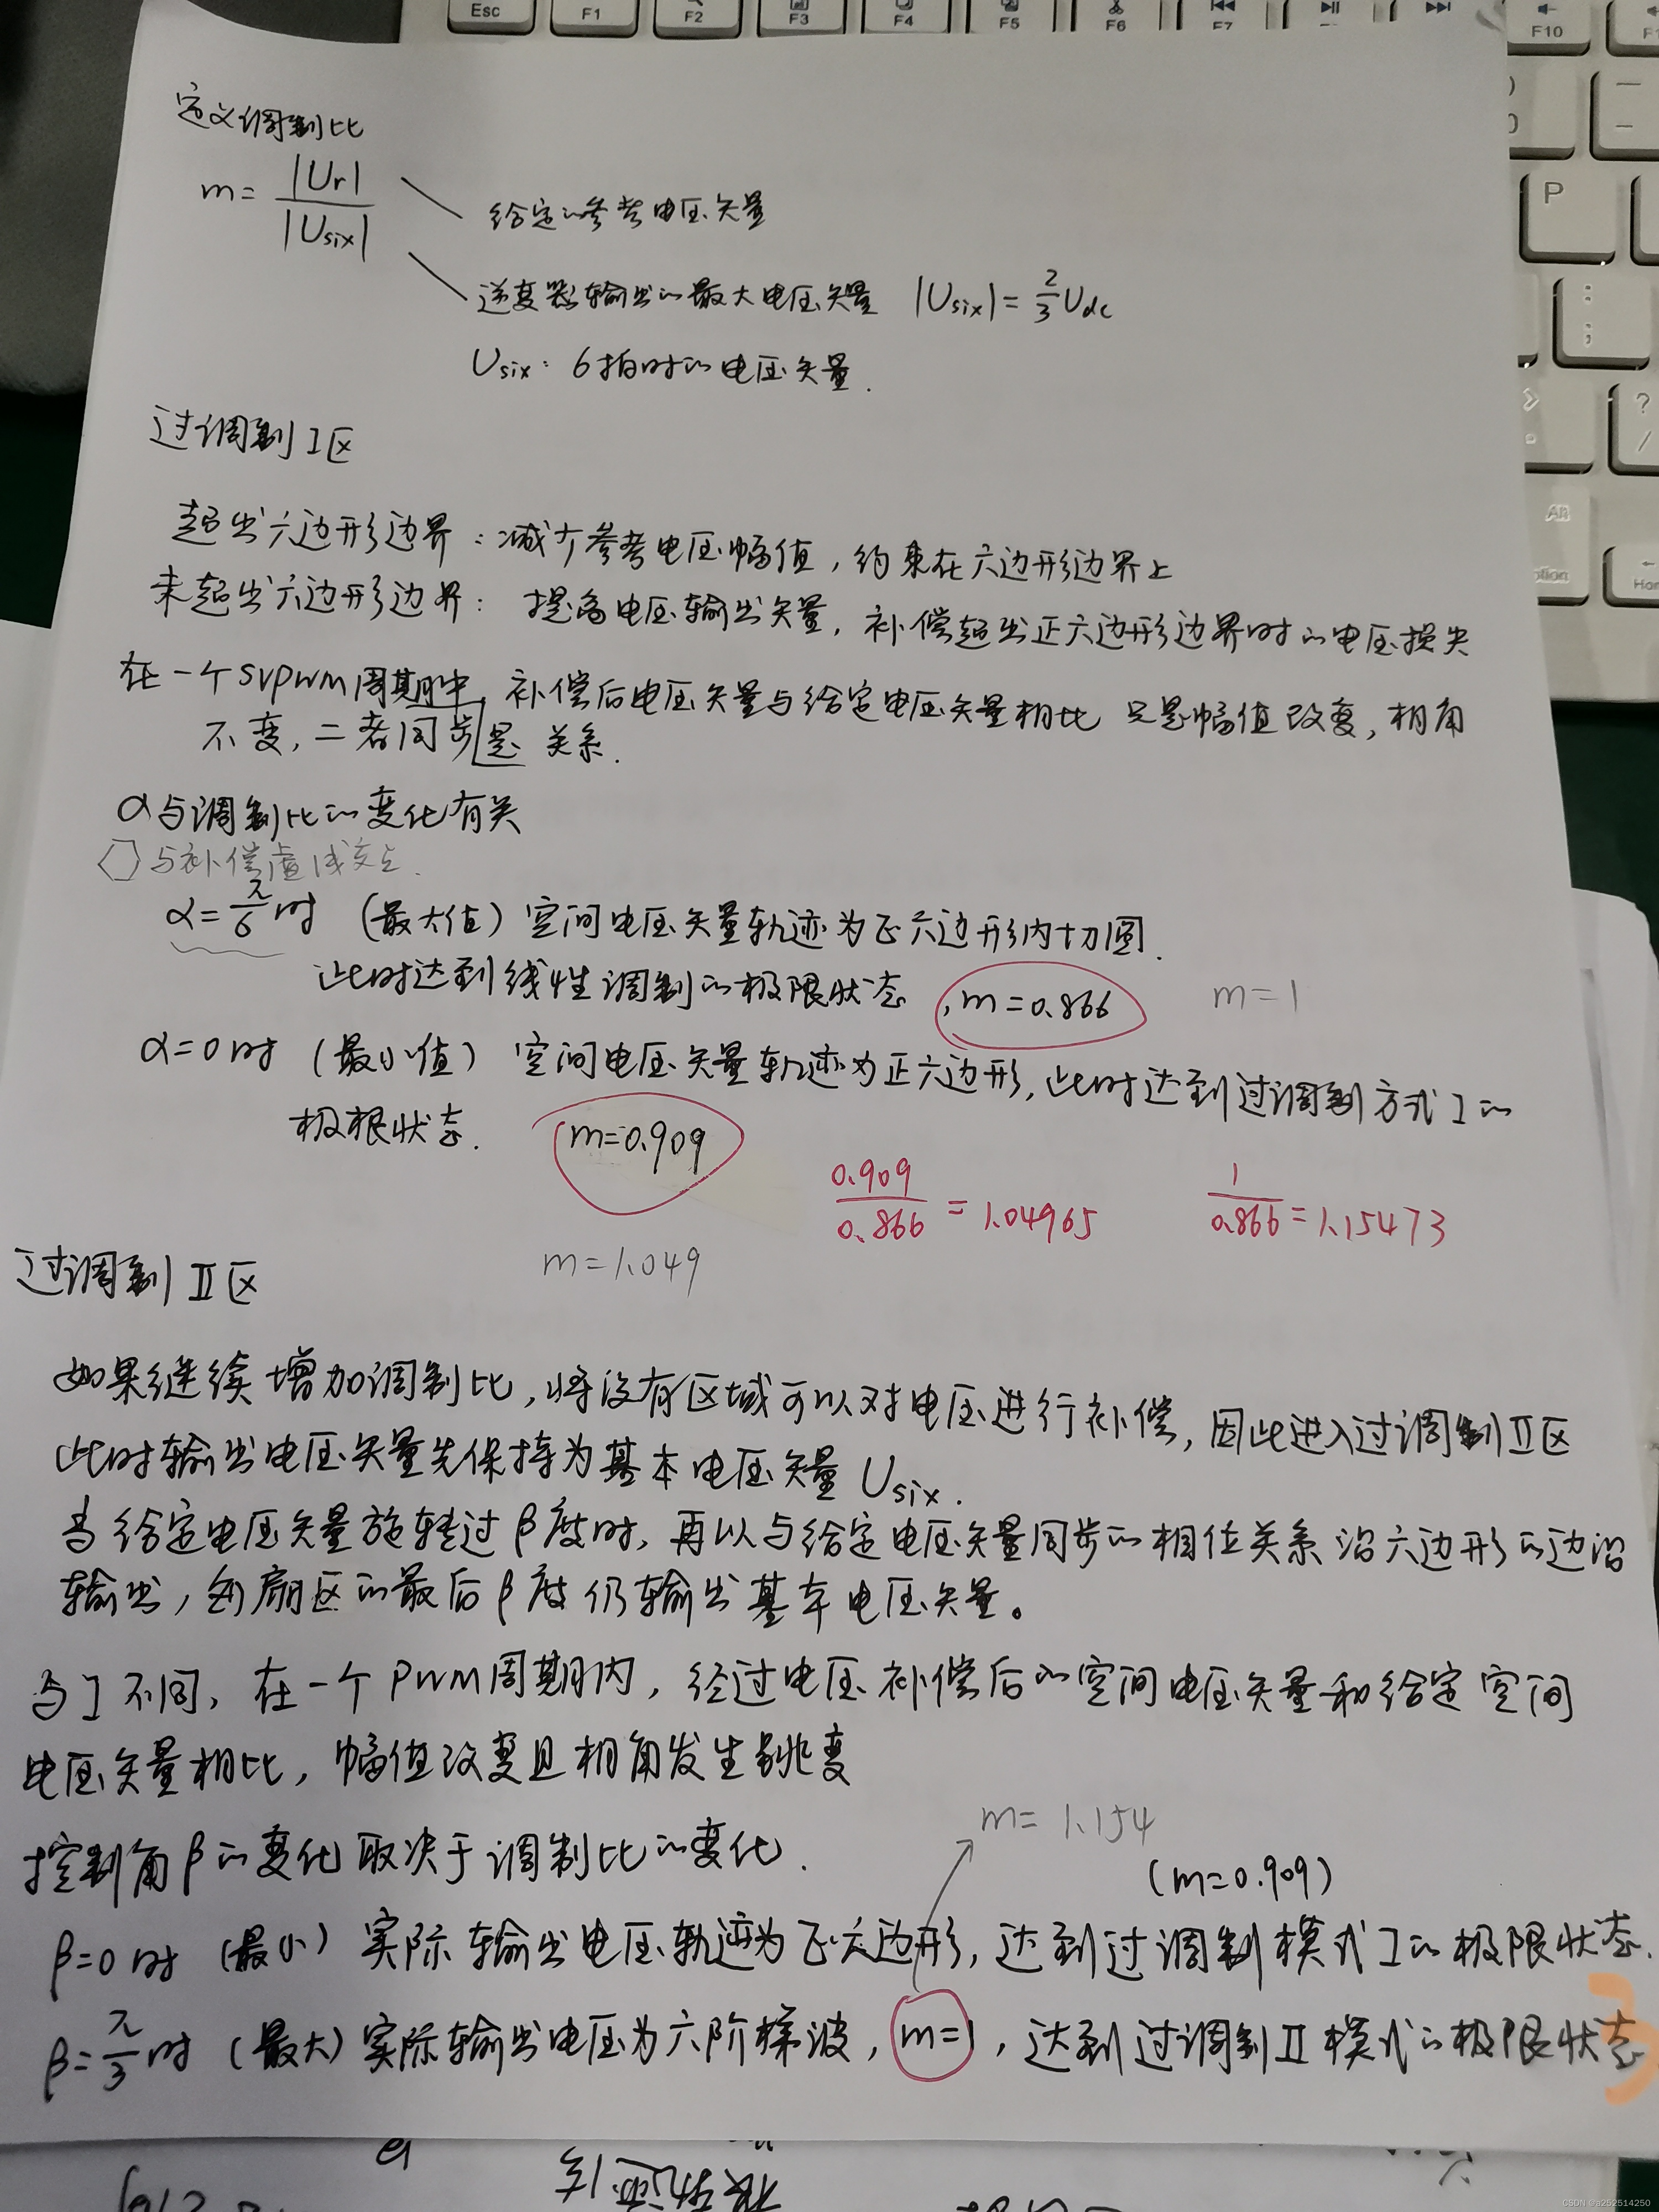 Esc F1 F2 F3 F4 F5 F6 F7 F10
P
: ;
? /
Alt
定义调制比
m = |Ur| / |Usix|
给定的参考电压矢量
逆变器输出的最大电压矢量 |Usix| = 2/3 Udc
Usix: 6拍时的电压矢量.
过调制I区
超出六边形边界：减少参考电压幅值，约束在六边形边界上
未超出六边形边界：提高电压输出矢量，补偿超出正六边形边界时的电压损失
在一个SVPWM周期中，补偿后电压矢量与给定电压矢量相比 只是幅值改变，相角
不变，二者同步是 关系.
α与调制比的变化有关
⬡与补偿虚线交点.
α=π/6时 (最大值) 空间电压矢量轨迹为正六边形内切圆.
此时达到线性调制的极限状态，m=0.866 m=1
α=0时 (最小值) 空间电压矢量轨迹为正六边形，此时达到过调制方式I的
极限状态. m=0.909
0.909/0.866 = 1.04965 1/0.866 = 1.15473
m=1.049
过调制II区
如果继续增加调制比，将没有区域可以对电压进行补偿，因此进入过调制II区
此时输出电压矢量先保持为基本电压矢量Usix.
当给定电压矢量旋转过β度时，再以与给定电压矢量同步的相位关系 沿六边形的边沿
输出，每扇区的最后β度仍输出基本电压矢量。
与I不同，在一个PWM周期内，经过电压补偿后的空间电压矢量和给定空间
电压矢量相比，幅值改变且相角发生跳变
控制角β的变化取决于调制比的变化.
m=1.154
(m=0.909)
β=0时 (最小) 实际输出电压轨迹为正六边形，达到过调制模式I的极限状态.
β=π/3时 (最大) 实际输出电压为六阶梯波，m=1，达到过调制II模式的极限状态
3
CSDN @a252514250